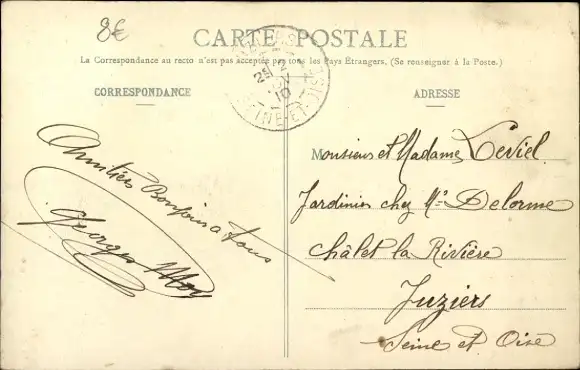 8€
CARTE POSTALE
La Correspondance au recto n'est pas acceptée par tous les Pays Étrangers. (Se renseigner à la Poste.)
CORRESPONDANCE
ADRESSE
Amitiés Bonjour a tous
Georges
Monsieur et Madame Leviel
Jardinier chez Mr Delorme
Châlet la Rivière
Juziers
Seine et Oise
SEINE-ET-OISE